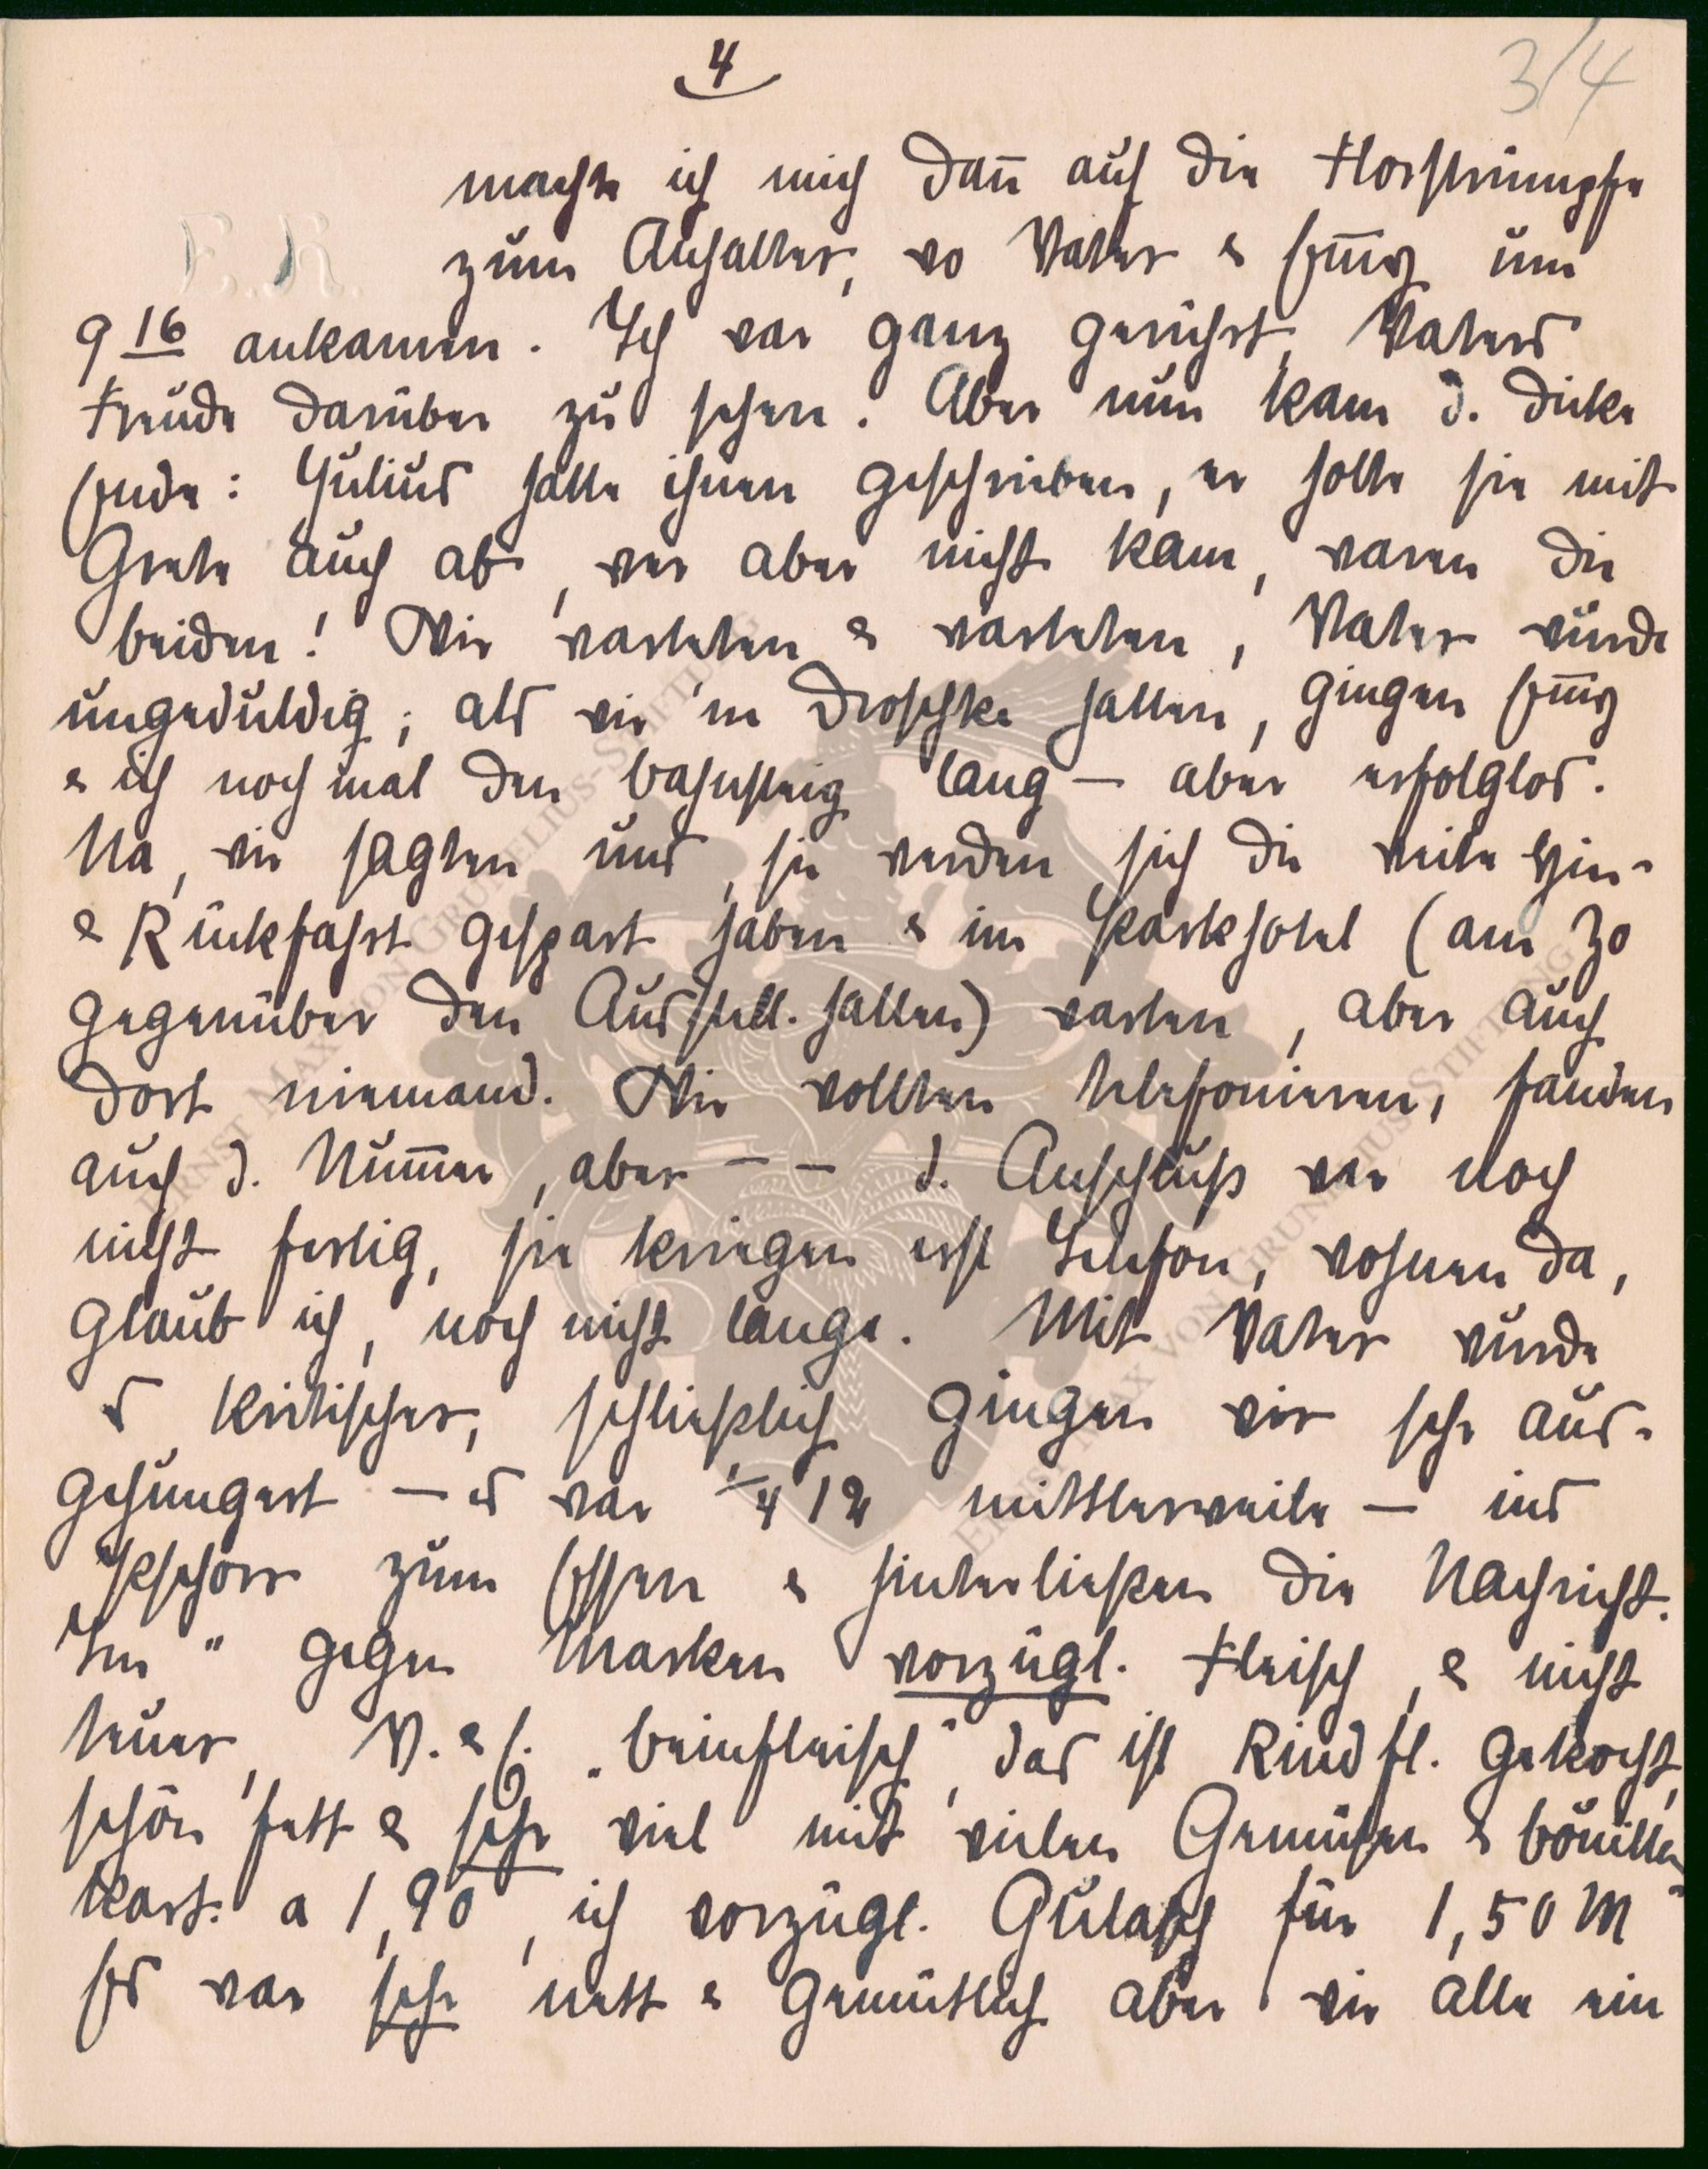 4
3/4
machte ich mich dan̄ auf die Florstrümpfe
F. K.
zum Anhalter, wo Vater & Em̄y um
9 16 ankamen. Ich war ganz gerührt, Vaters
Freude darüber zu sehen. Aber nun kam d. dicke
Ende: Julius hatte ihnen geschrieben, er holte sie mit
Grete auch ab, wer aber nicht kam, waren die
beiden! Wir warteten & warteten, Vater wurde
ungeduldig; als wir 'ne Droschke hatten, gingen Em̄y
& ich noch mal den Bahnsteig lang – aber erfolglos.
Na, wir sagten uns, sie werden sich die weite Hin-
& Rückfahrt gespart haben & im Parkhotel (am Zo
gegenüber den Ausstell. hallen) warten, aber auch
dort niemand. Wir wollten telefonieren, fanden
auch d. Num̄er, aber – – d. Anschluß war noch
nicht fertig, sie kriegen erst Telefon, wohnen da,
glaub ich, noch nicht lange. Mit Vater wurde
es kritischer, schließlich gingen wir sehr aus-
gehungert – es war 1/4 12 mittlerweile – ins
Pschorr zum Essen & hinterließen die Nachricht.
Im " gegen Marken vorzügl. Fleisch, & nicht
teuer, V. & E. „Beinfleisch", das ist Rindfl. gekocht,
schön fett & sehr viel mit vielen Gemüsen & Bouillon
kart. a 1,90, ich vorzügl. Gulasch für 1,50 M
Es war sehr nett & gemütlich aber wir alle ein
ERNST MAX VON GRUNELIUS-STIFTUNG
ERNST MAX VON GRUNELIUS-STIFTUNG